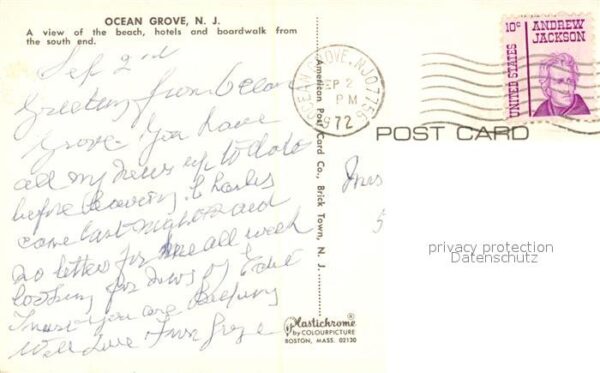 OCEAN GROVE, N. J.
A view of the beach, hotels and boardwalk from
the south end.
Sep 2nd
Greeting from Ocean
Grove. You have
all my news up to date
before leaving. Charles
came last night and
no letter for me all week
looking for news of
Trust you are keeping
Well Love From
American Post Card Co., Brick Town, N. J.
Plastichrome®
by COLOURPICTURE
BOSTON, MASS. 02130
OCEAN GROVE, NJ 07756
SEP 2
PM
1972
10c ANDREW
JACKSON
UNITED STATES
POST CARD
privacy protection
Datenschutz